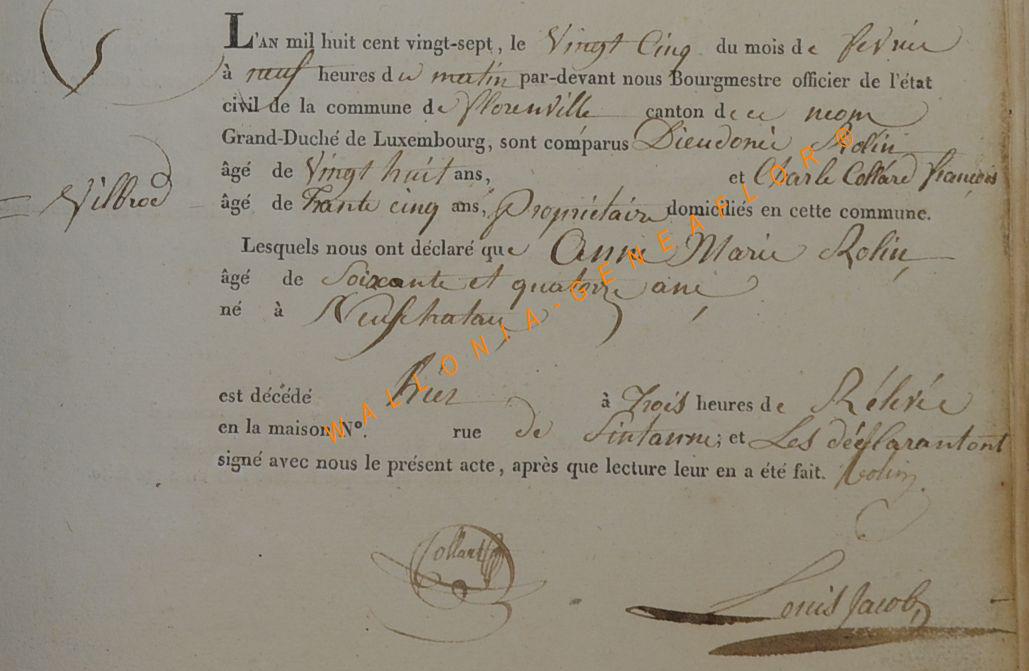 L'AN mil huit cent vingt-sept, le Vingt Cinq du mois de fevrier
à neuf heures du matin par-devant nous Bourgmestre officier de l'état
civil de la commune de florenville canton de ce neom
Grand-Duché de Luxembourg, sont comparus Dieudonné Rolin
âgé de Vingt huit ans, et Charle Collard françois
Wilbrod
âgé de Trante cinq ans, Propriétaire domiciliés en cette commune.
Lesquels nous ont déclaré que Anne Marie Rolin,
âgé de Soixante et quatorze ans
né à Neufchatau
est décédé hier à Trois heures de Rélevée
en la maison N°. rue de Sintanne; et Les déclarant ont
signé avec nous le présent acte, après que lecture leur en a été fait. Rolin
Collard
Louis Jacob
WALLONIA-GENEAFLORE